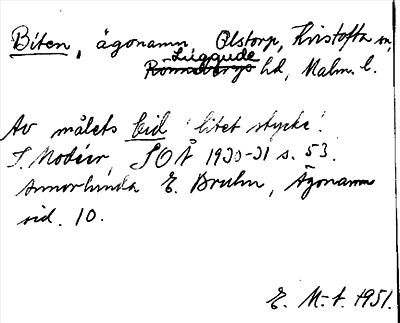 Biten, ägonamn, Olstorp, Kvistofta sn,
Luggude
Rönnebergs hd, Malm. l.
Av målets bid 'litet stycke'.
I. Modéer, SOÅ 1930-31 s. 53.
Annorlunda E. Bruhn, Ägonamn
sid. 10.
E. M-t. 1951.